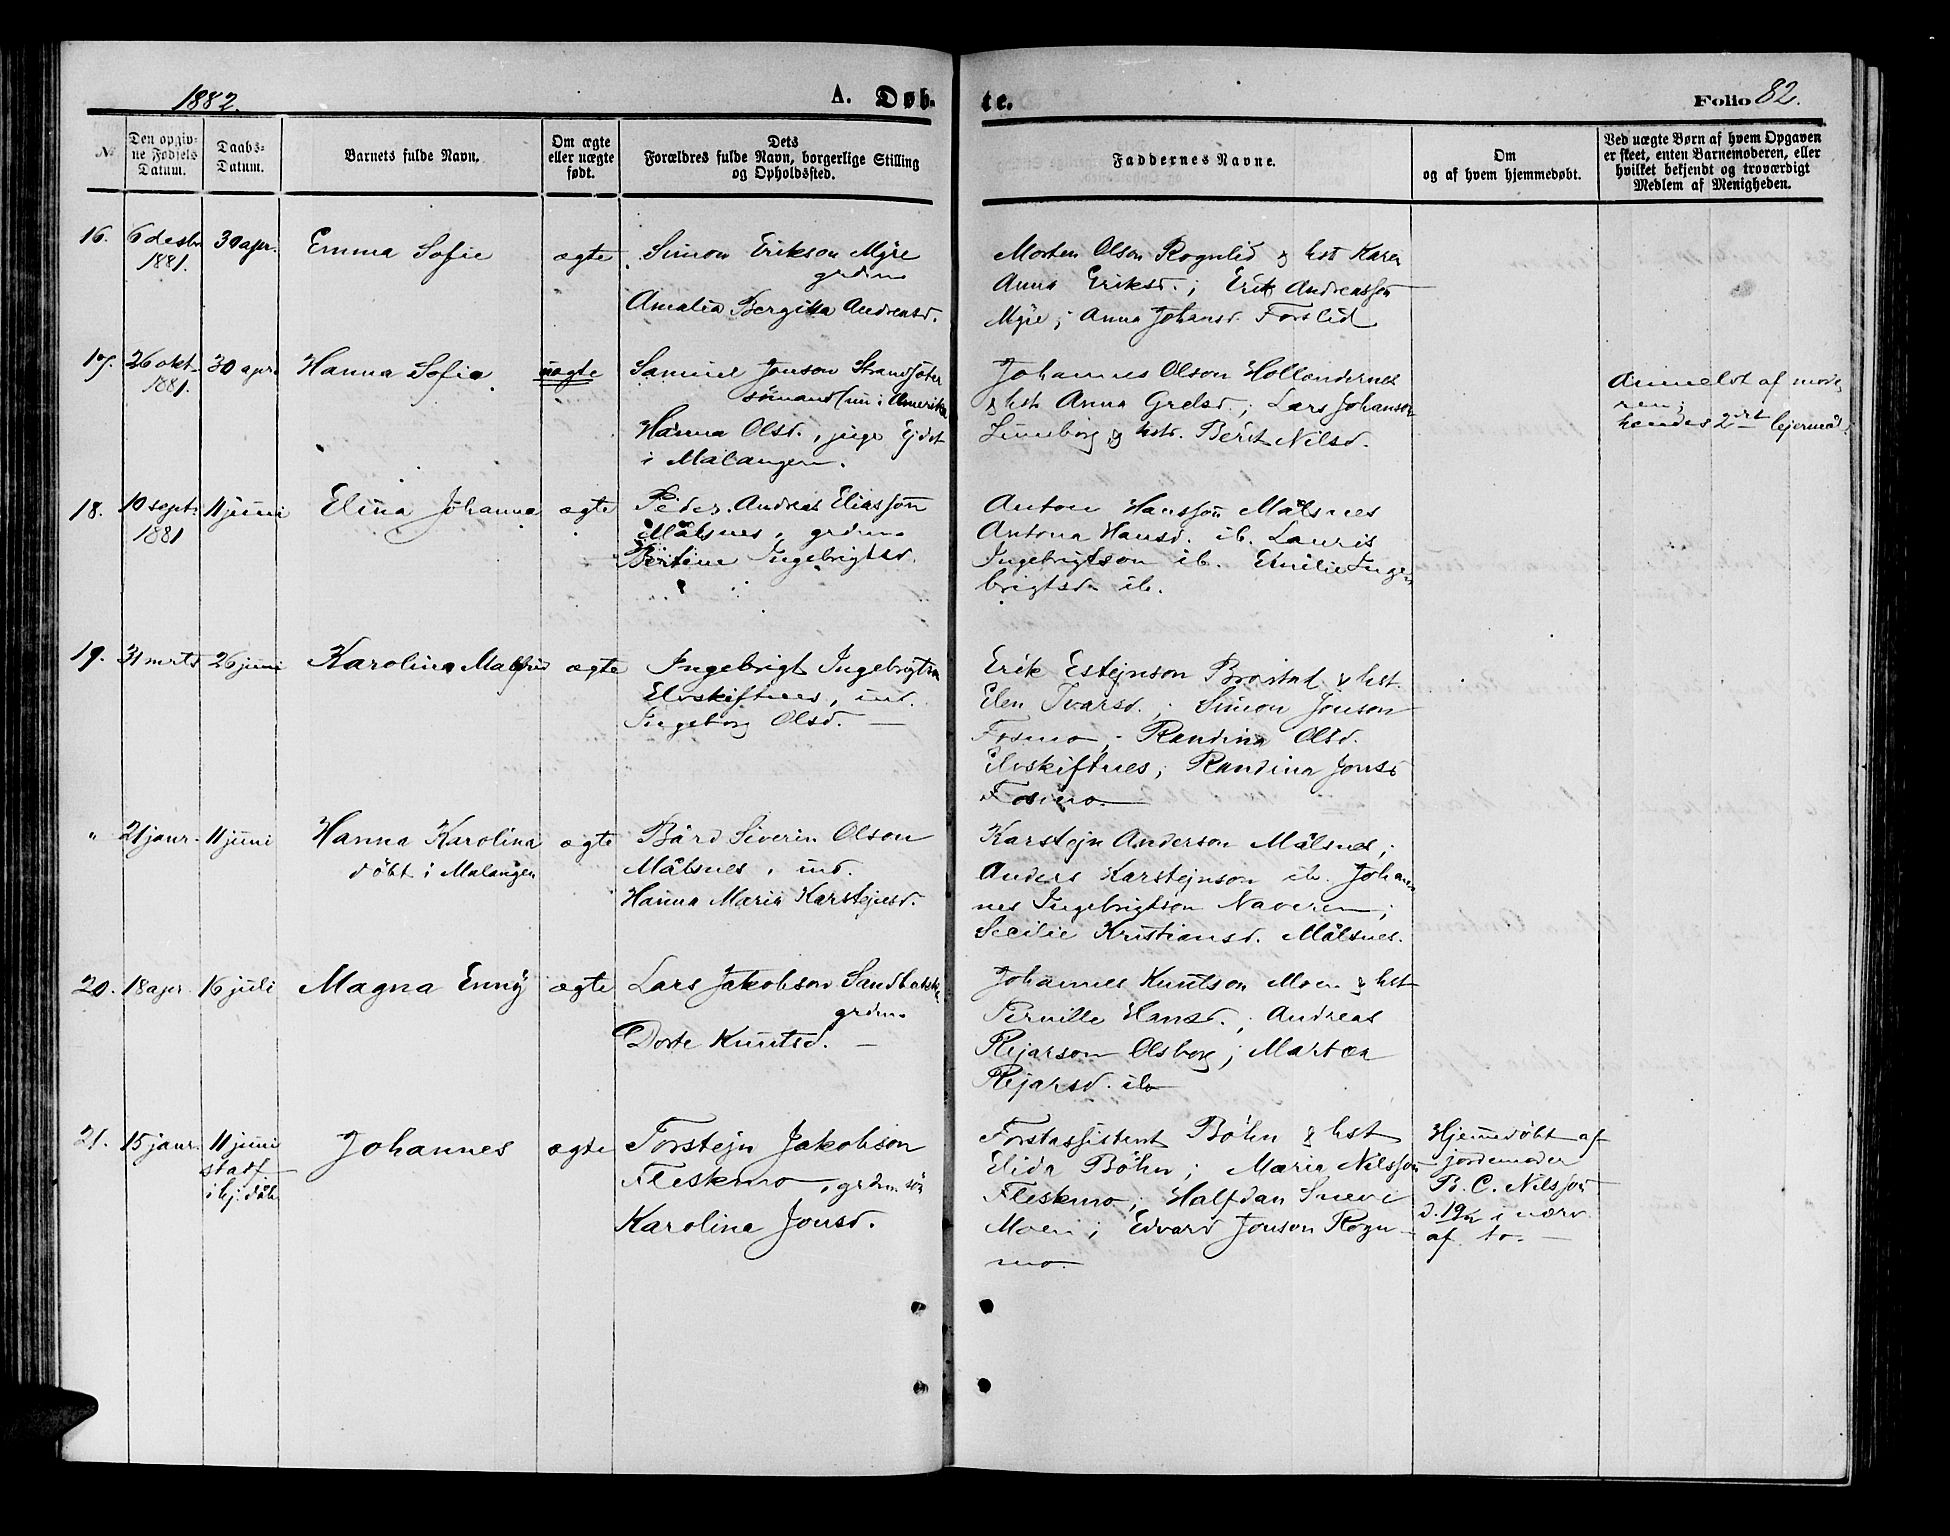 1882.
A. Døb-
te.
Folio 82.
№
Den opgiv-
ne Fødsels
Datum.
Daabs-
Datum.
Barnets fulde Navn.
Om ægte
eller uægte
født.
Dets
Forældres fulde Navn, borgerlige Stilling
og Opholdssted.
Faddernes Navne.
Om
og af hvem hjemmedøbt.
Ved uægte Børn af hvem Opgaven
er skeet, enten Barnemoderen, eller
hvilket bekjendt og troværdigt
Medlem af Menigheden.
16.
6 desbr
1881.
30 apr.
Emma Sofie
ægte
Simon Erikson Myre
grdm.
Amalia Bergitta Andreasd.
Morten Olson Rognlid & hst Karen
Anna Eriksd.; Erik Andreasson
Myre; Anna Johansd. Forslid
17.
26 okt.
1881.
30 apr.
Hanna Sofie
uægte
Samuel Jonson
sömand (nu i Amerika
Hanna Olsd., pige Ejdet
i Malangen.
Johannes Olson Hollendernes
& hst. Anna Grelsd.; Lars Johanson
& hst. Berit Nilsd.
Anmeldt af mode
ren;
hendes 2det lejermål.
18.
10 sept.
1881
11 juni
Elina Johanna
ægte
Peder Andreas Eliasson
Målsnes, grdm.
Bertine Ingebrigtsd.
Anton Hansson Målsnes
Antona Hansd. ib. Lauris
Ingebrigtson ib. Emilie Inge
brigtsd. ib.
19.
31 mrts
26 juni
Karolina Malfrid
ægte
Ingebrigt Ingebrigtsn
Elvskiftnes, ind.
Ingeborg Olsd. —
Erik Estejnson Brostad & hst.
Elen Ivarsd.; Simon Jonson
Fosmo; Randina Olsd.
Elvskiftnes; Randina Jonsd
Fosmo.
"
21 janr.
11 juni
Hanna Karolina
döbt i Malangen
ægte
Bård Siverin Olson
Målsnes, ind.
Hanna Marie Karstejnsd.
Karstejn Anderson Målsnes;
Anders Karstejnson ib. Johan
nes Ingebrigtson Naveren;
Secilie Kristiansd. Målsnes.
20.
18 apr.
16 juli
Magna Enny
ægte
Lars Jakobson
grdm.
Dorte Knutsd. —
Johannes Knutson Moen & hst
Pernille Hansd.; Andreas
Rejarson Olsborg; Martea
Rejarsd. ib
21.
15 janr.
11 juni
stadf
i hj. dåb
Johannes
ægte
Torstejn Jakobson
Fleskmo, grdm. sön
Karolina Jonsd.
Forstassistent Böhn & hst
Elida Böhn; Maria Nilsson
Fleskmo; Halfdan
Moen; Edvard Jonson Rogn-
mo.
Hjemedöbt af
jordemoder
B. C. Nilsson
d. 19/2 i nærv.
af to. —